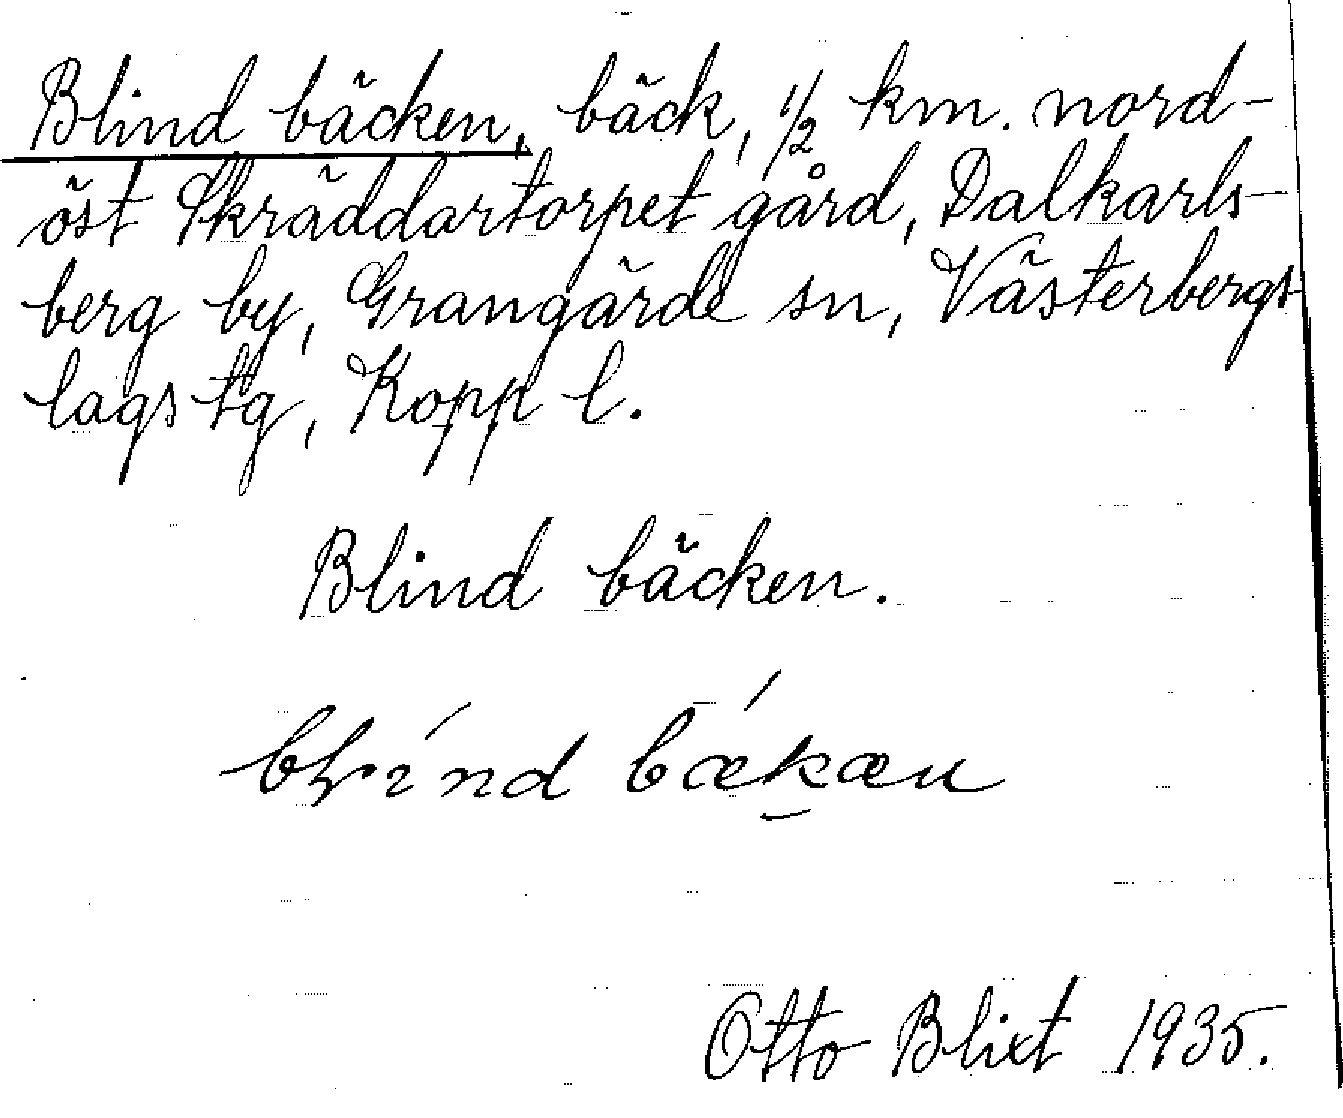 Blind bäcken, bäck, 1/2 km. nord-
öst Skräddartorpet gård, Dalkarls-
berg by, Grangärde sn, Västerbergs-
lags tg, Kopp l.
Blind bäcken.
blínd bǽkæn
Otto Blixt 1935.